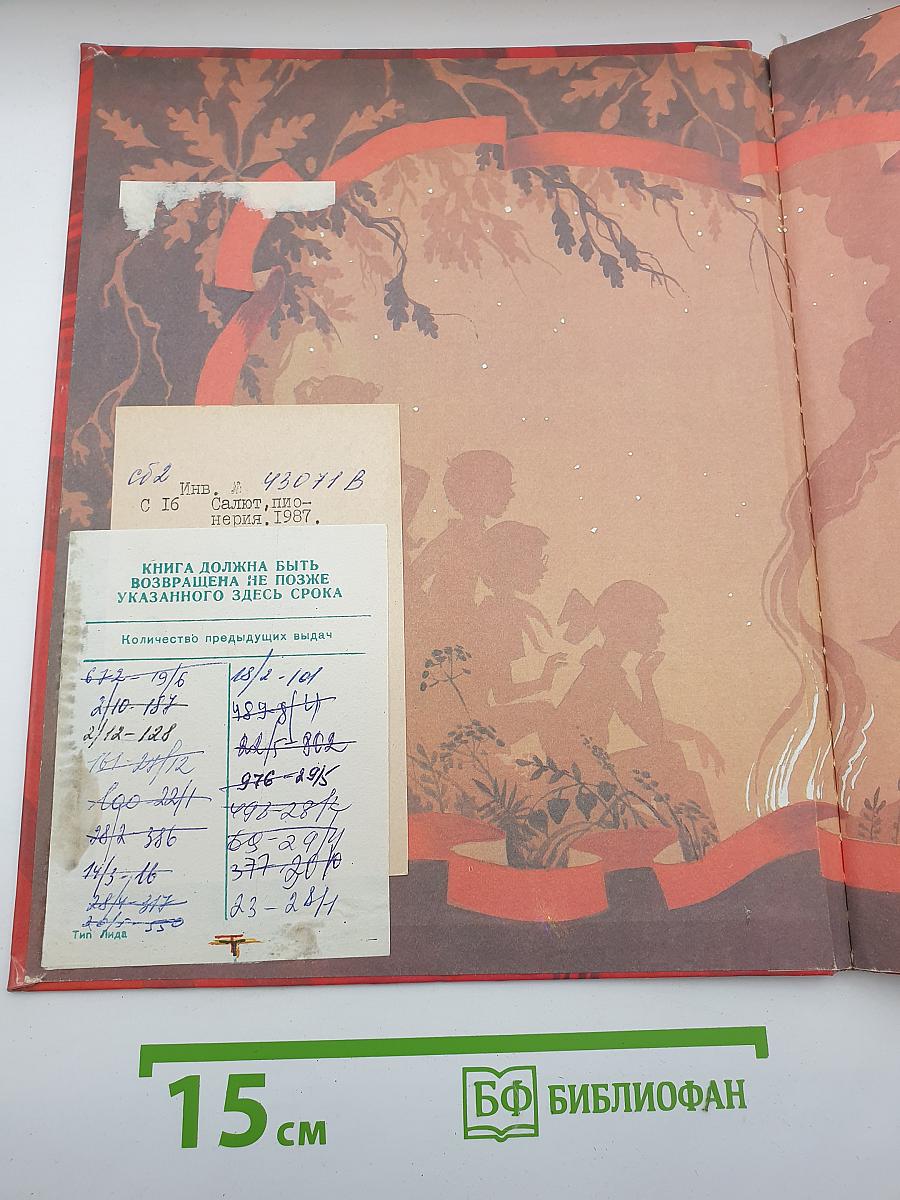 сб2
Инв. № 43071В
С 16 Салют, пио-
нерия. 1987.
КНИГА ДОЛЖНА БЫТЬ
ВОЗВРАЩЕНА НЕ ПОЗЖЕ
УКАЗАННОГО ЗДЕСЬ СРОКА
Количество предыдущих выдач
672-19/6
2/10-187
2/12-128
161-28/12
190-22/1
28/2-386
14/3-16
28/4-317
26/5-550
18/2-101
489-8/4
22/5-802
976-29/5
69-29/4
23-28/1
Тип Лида
15 см
БФ БИБЛИОФАН